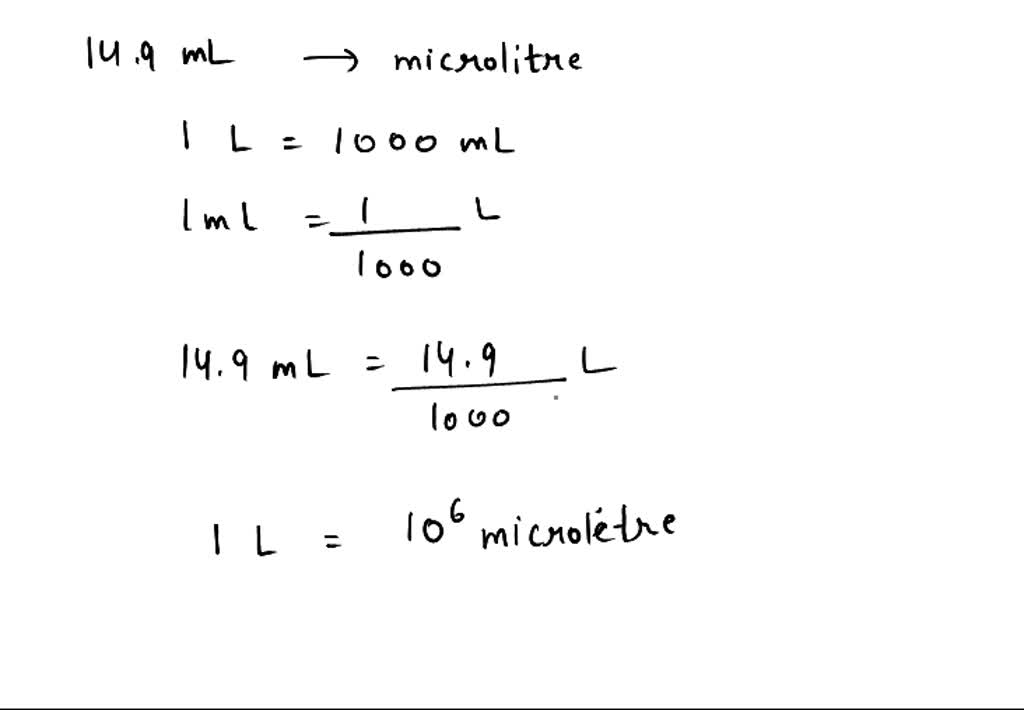 14.9 mL → microlitre
1 L = 1000 mL
1 mL = 1/1000 L
14.9 mL = 14.9/1000 L
1 L = 10⁶ microlitre